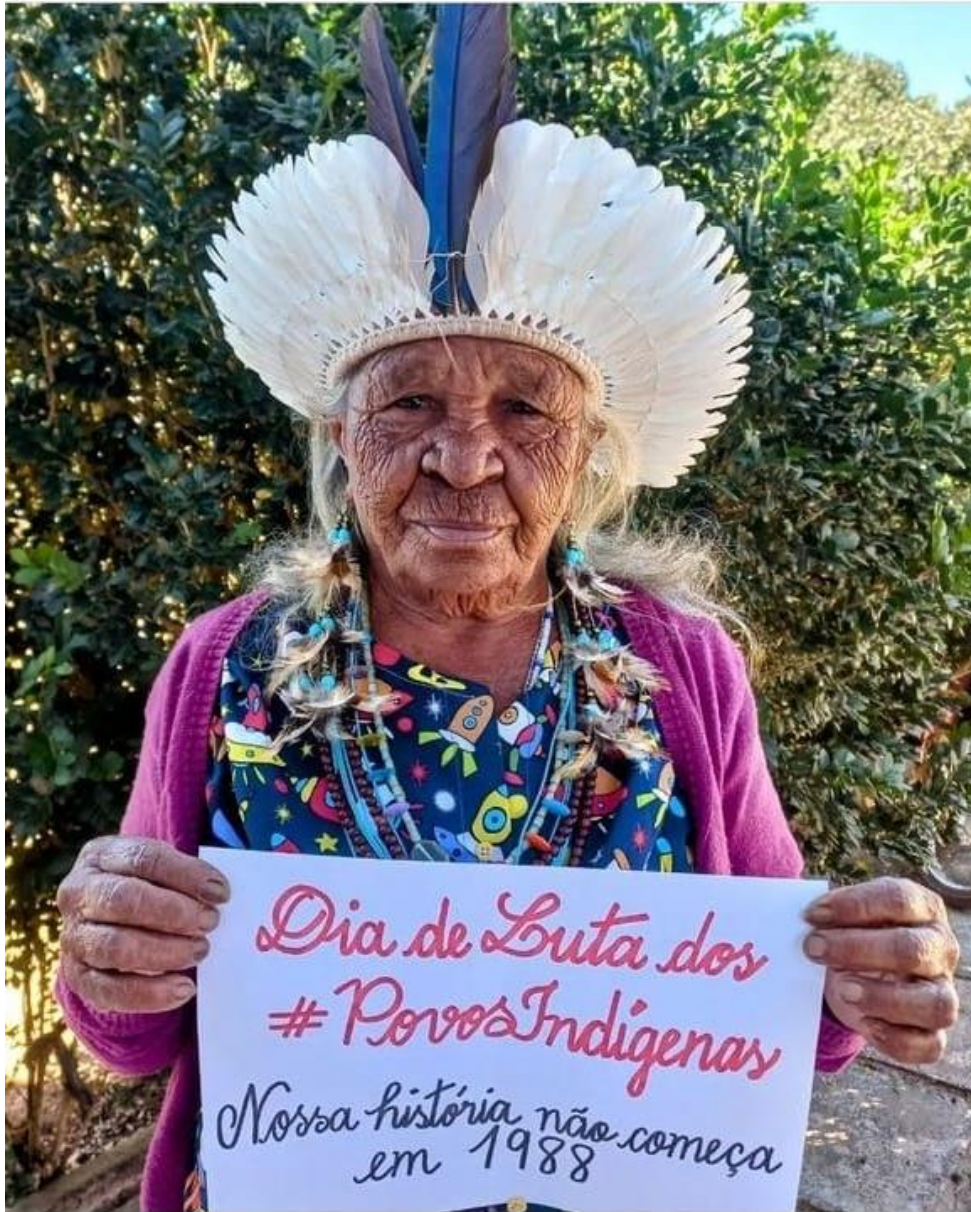 Dia de Luta dos
#PovosIndígenas
Nossa história não começa
em 1988